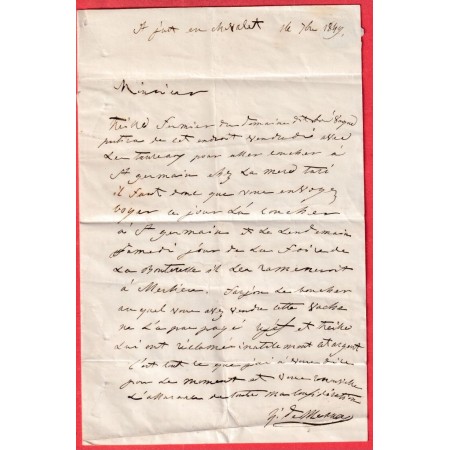 St just en chevalet 14 7bre 1849
Monsieur
fermier du domaine dit
partira de cet endroit vendredi avec
Le taureau pour aller coucher à
St germain chez La mere
il faut donc que vous envoyez
ce jour Là coucher
à St germain et Le Lendemain
Samedi jour de La foire de
La Bouteresse il Les ramenerait
à Le boucher
auquel vous avez vendu cette vache
ne L'a pas payé et
Lui ont réclamé inutilement Largent
C'est tout ce que j'ai à vous dire
pour Le moment et vous renouvelle
L'assurance de toute ma Considération